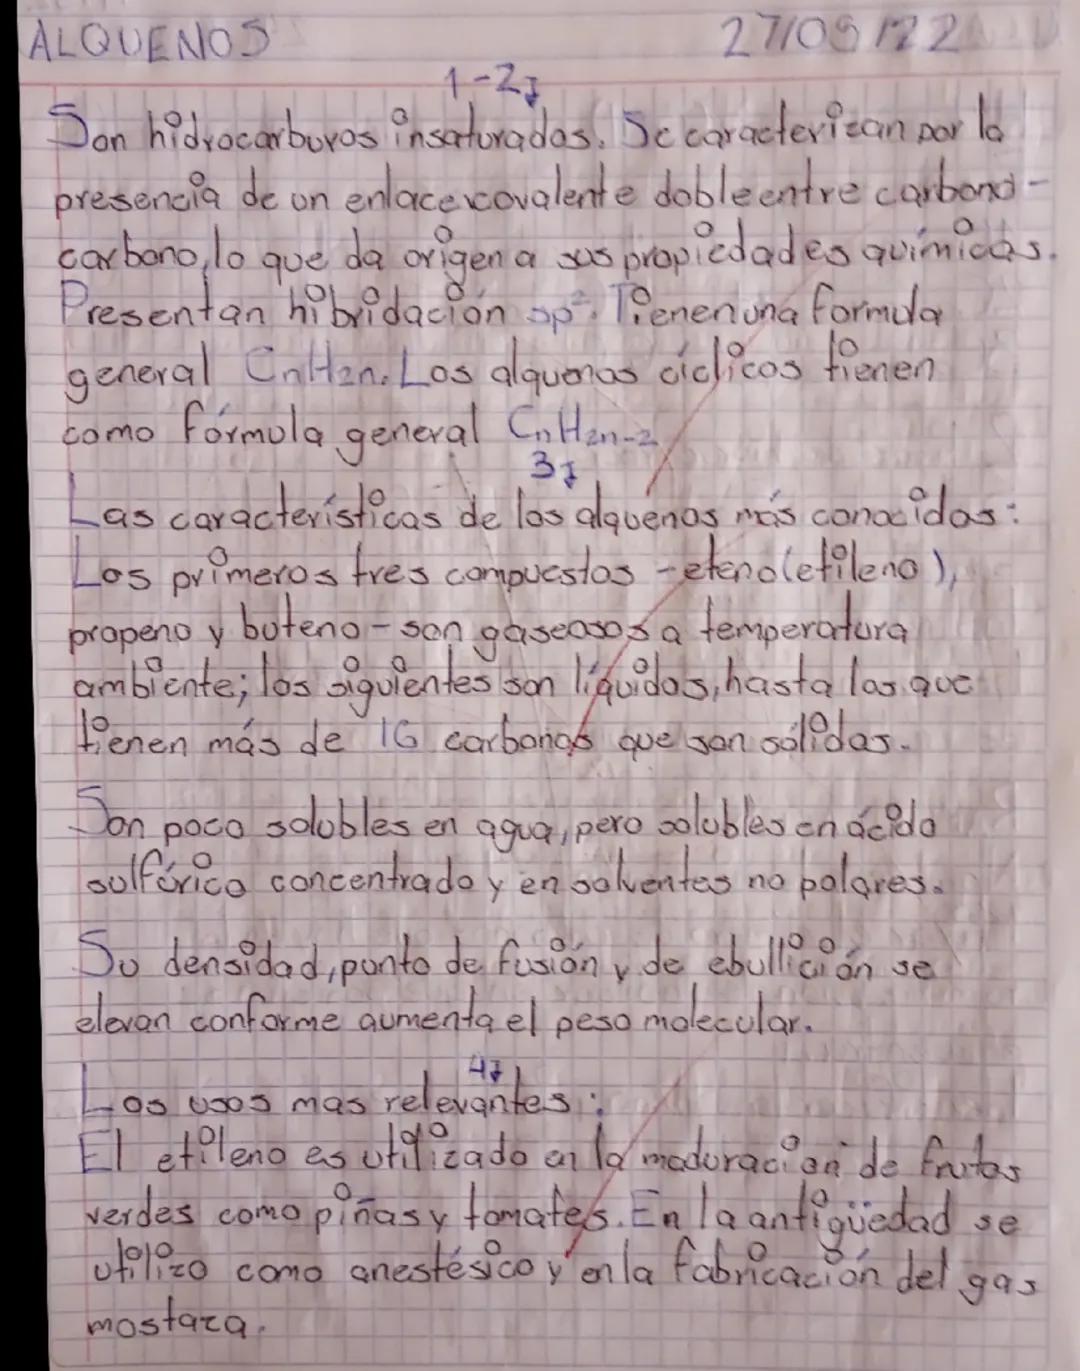 ALQUENOS 27/09/22
1-2
Son hidrocarburos insaturados. Se caracterizan por la
presencia de un enlace covalente doble entre carbono-
carbono, lo que da origen a sus propiedades químicas.
Presentan hibridación sp². Tienen una formula
general CnH2n. Los alquenos cíclicos tienen
como fórmula general CnH2n-2
3
Las características de los alquenos más conocidos:
Los primeros tres compuestos - eteno (etileno),
propeno y buteno - son gaseosos a temperatura
ambiente; los siguientes son líquidos, hasta los que
tienen más de 16 carbonos que son sólidos.
Son poco solubles en agua, pero solubles en ácido
sulfúrico concentrado y en solventes no polares.
Su densidad, punto de fusión y de ebullición se
elevan conforme aumenta el peso molecular.
4
Los usos mas relevantes:
El etileno es utilizado en la maduración de frutas
verdes como piñas y tomates. En la antigüedad se
utilizo como anestésico y en la fabricación del gas
mostaza.